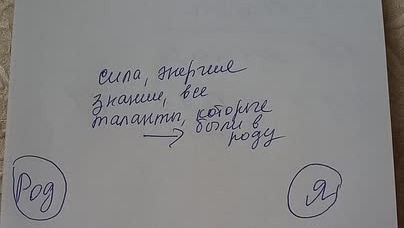 сила, энергия
знание, все
таланты, которые
были в
роду
Род
Я